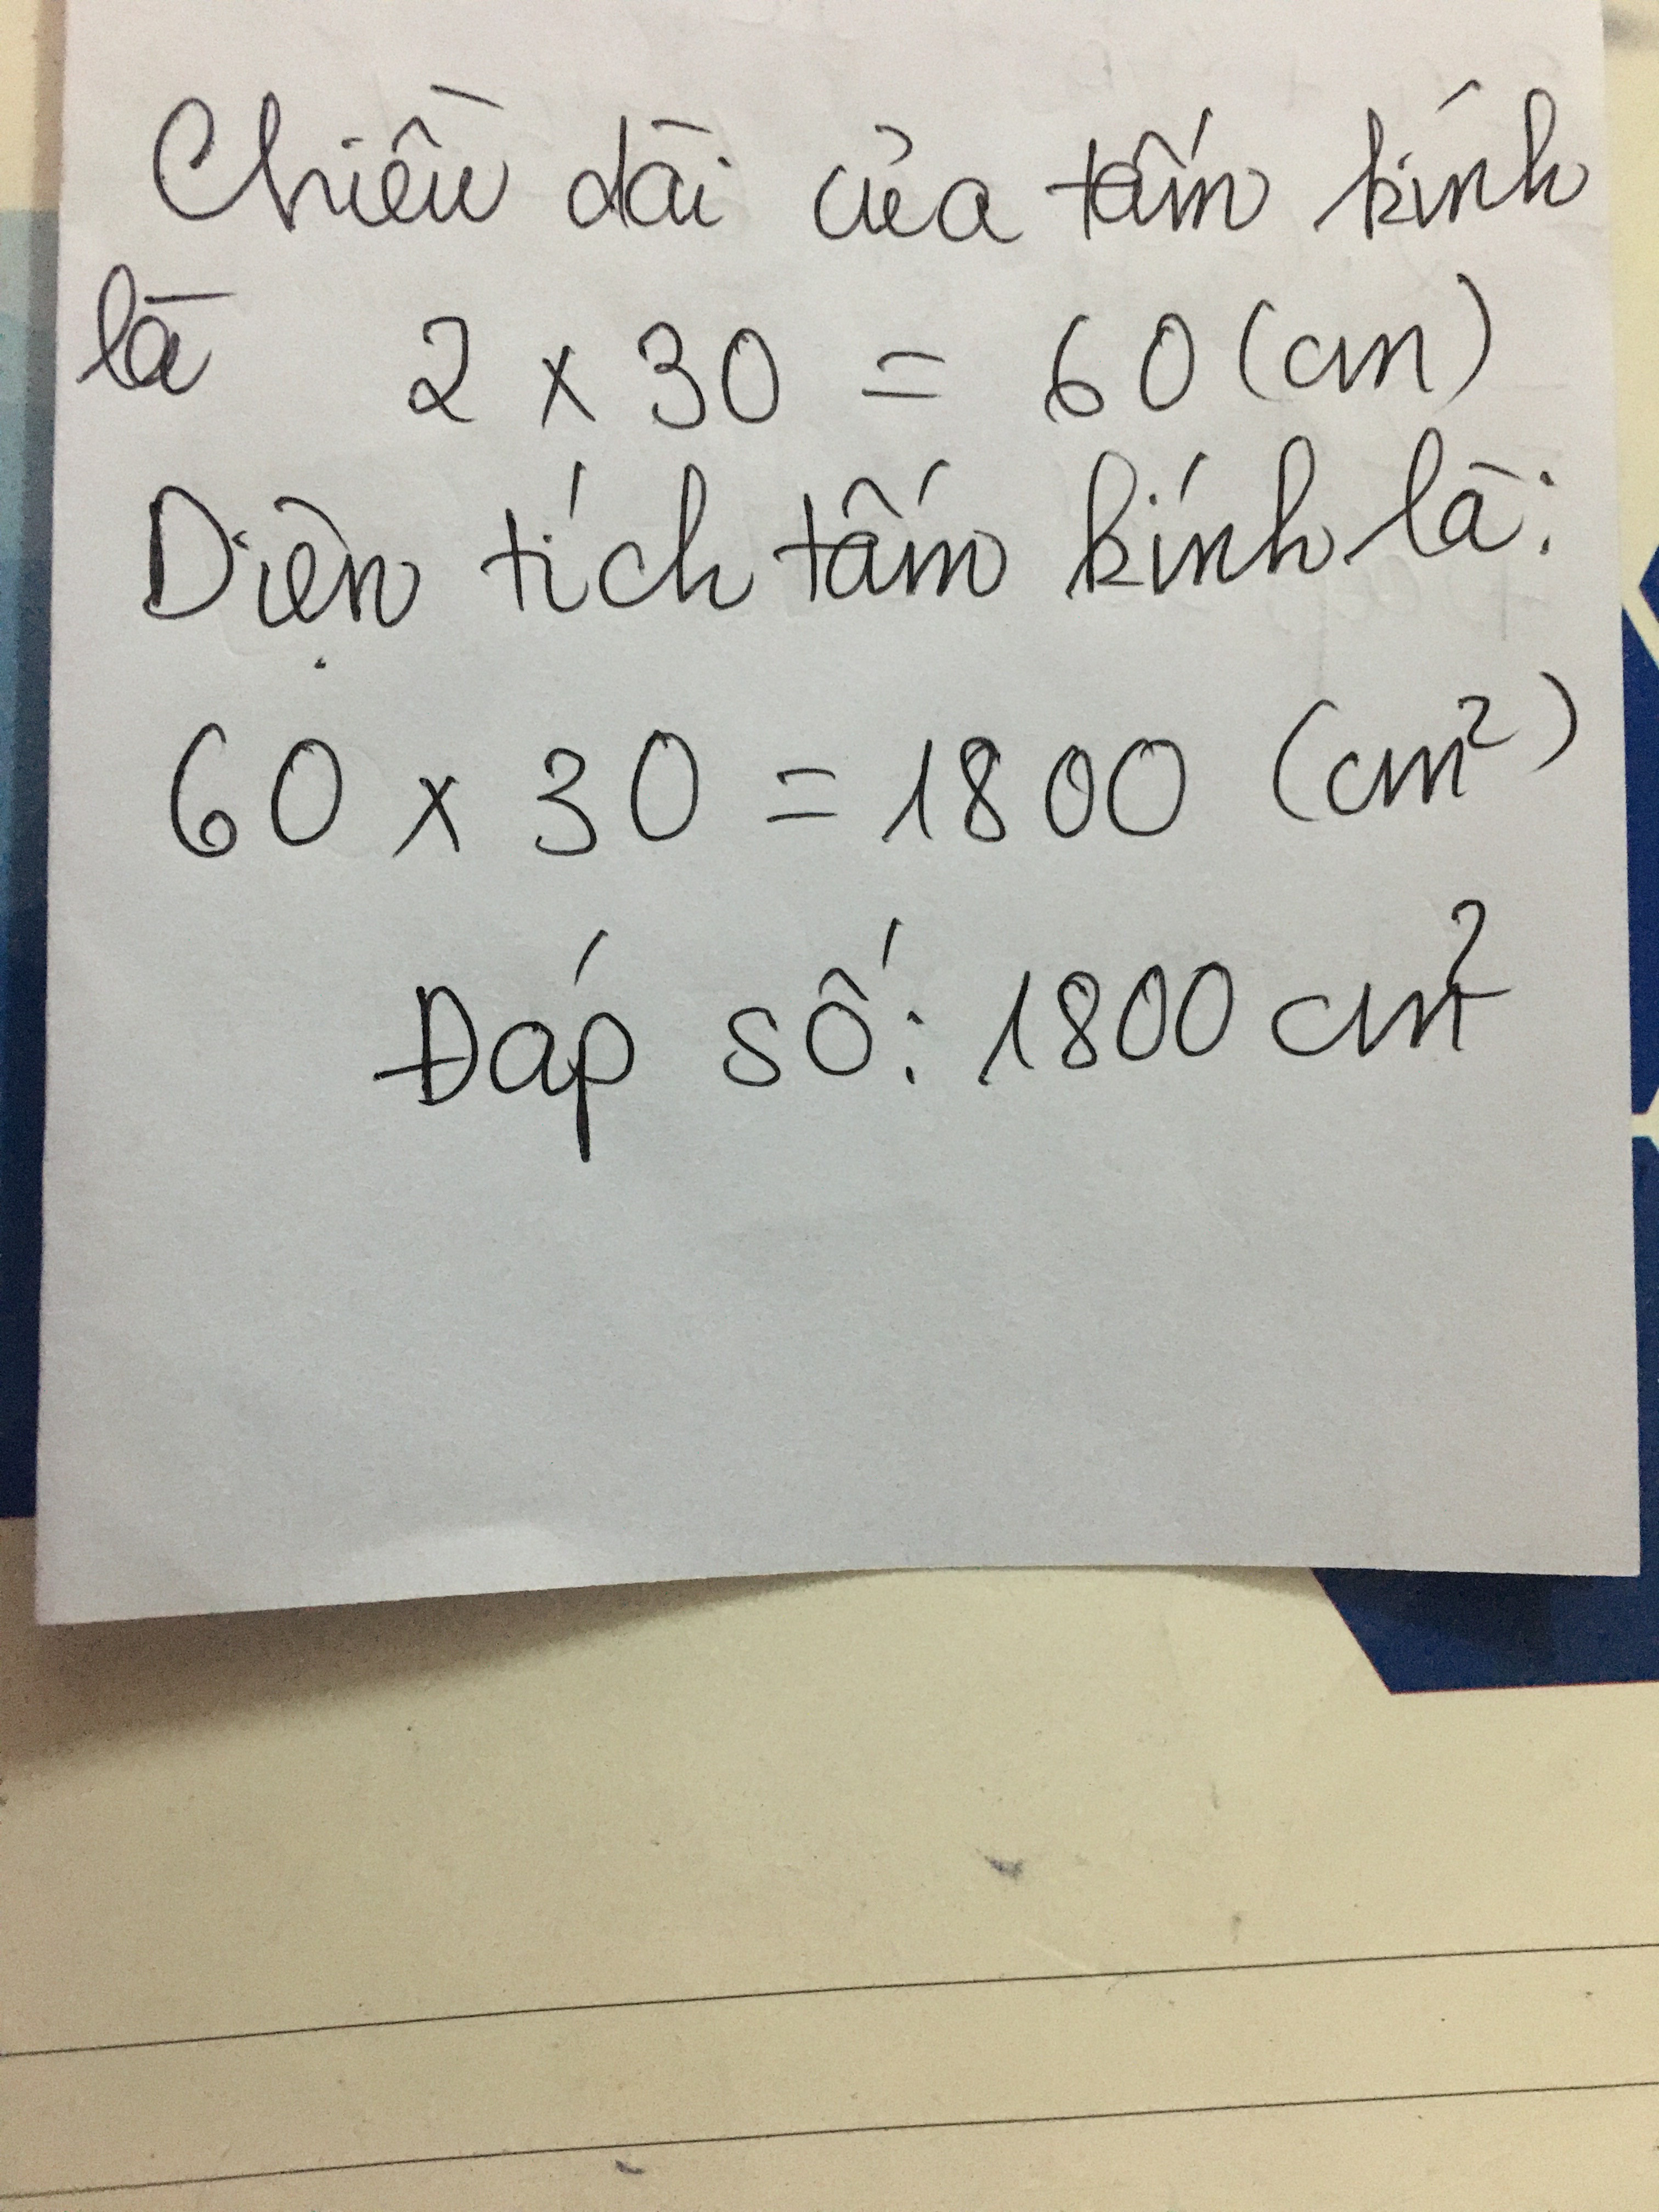 Chiều dài của tấm kính
là 2 x 30 = 60 (cm)
Diện tích tấm kính là:
60 x 30 = 1800 (cm²)
Đáp số: 1800 cm²